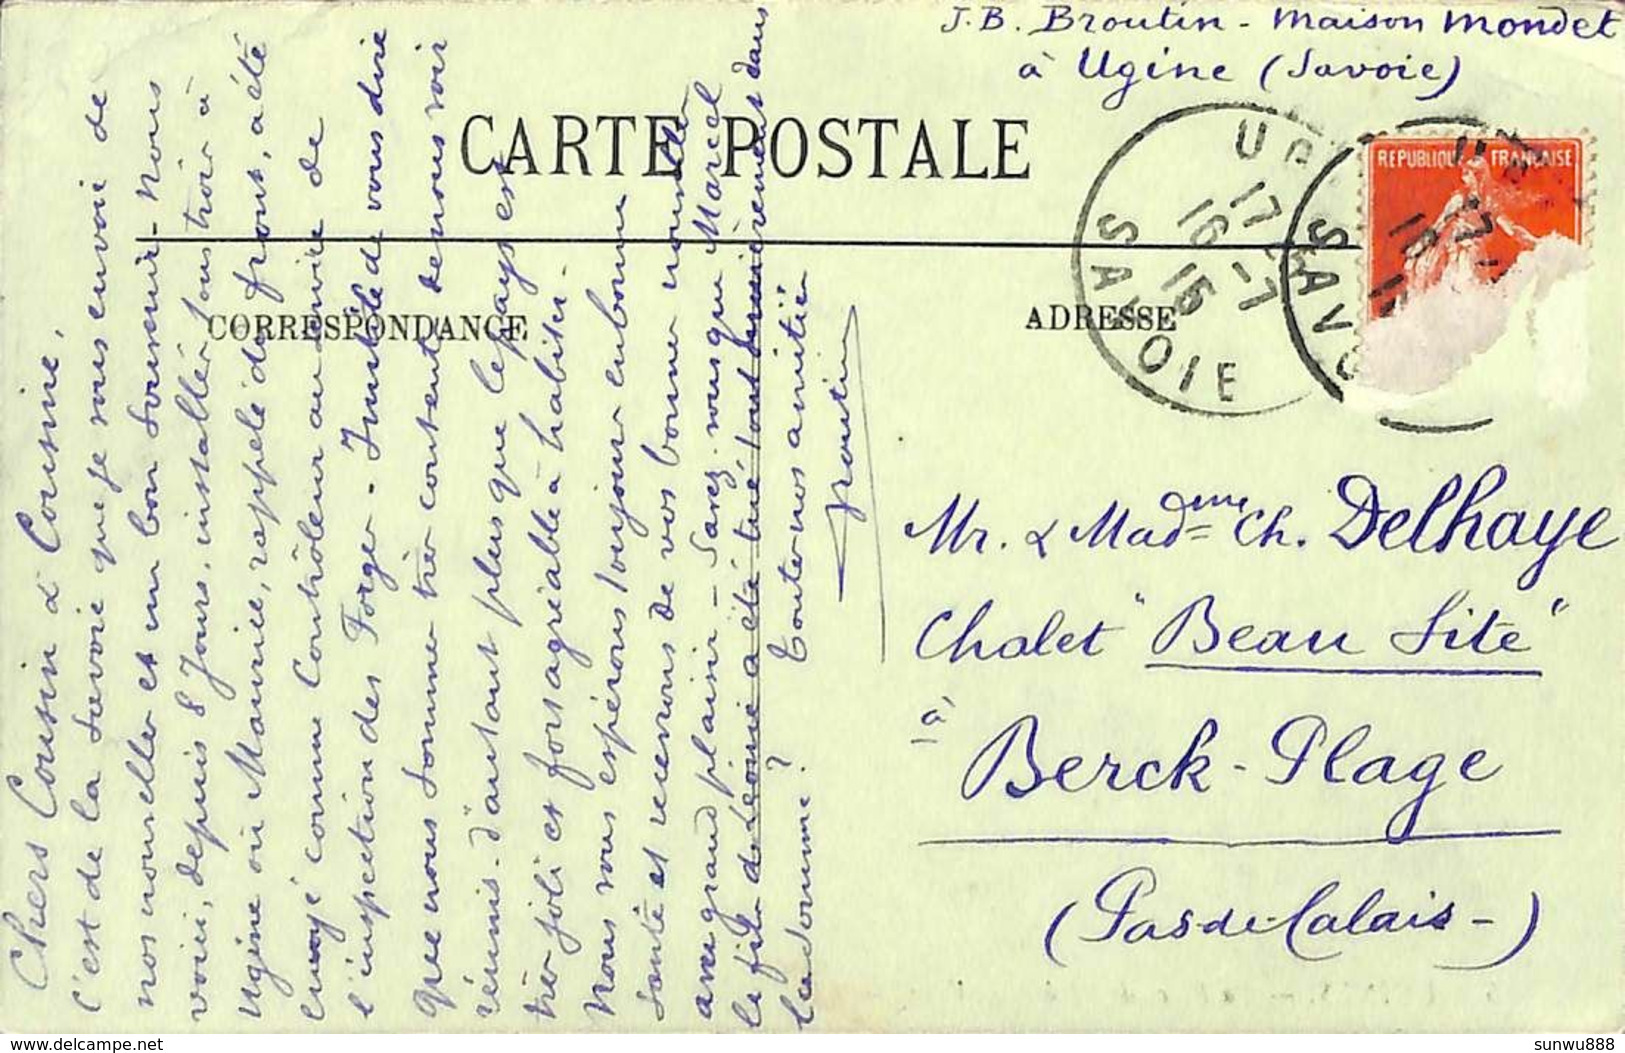 J.B. Broutin - Maison Mondet
à Ugine (Savoie)
CARTE POSTALE
CORRESPONDANCE
ADRESSE
REPUBLIQUE FRANÇAISE
17
16 - 7
15
SAVOIE
Mr. & Madme Ch. Delhaye
Chalet "Beau Site"
à
Berck-Plage
(Pas de Calais-)
Chers Cousin & Cousine,
C'est de la Savoie que je vous envoie de
nos nouvelles et un bon souvenir. Nous
voici, depuis 8 jours, installés tous trois à
Ugine où Maurice, rappelé du front, a été
envoyé comme Contrôleur au service de
l'inspection des Forges - Inutile de vous dire
que nous sommes très contents de nous voir
réunis. d'autant plus que le pays est
très joli et fort agréable à habiter.
Nous vous espérons toujours en bonne
santé et recevrons de vos bonnes nouvelles
avec grand plaisir - Savez-vous que Marcel
le fils de Léonie a été tué, tout dernièrement dans
? Toutes nos amitiés
Broutin
delcampe.net
sunwu888